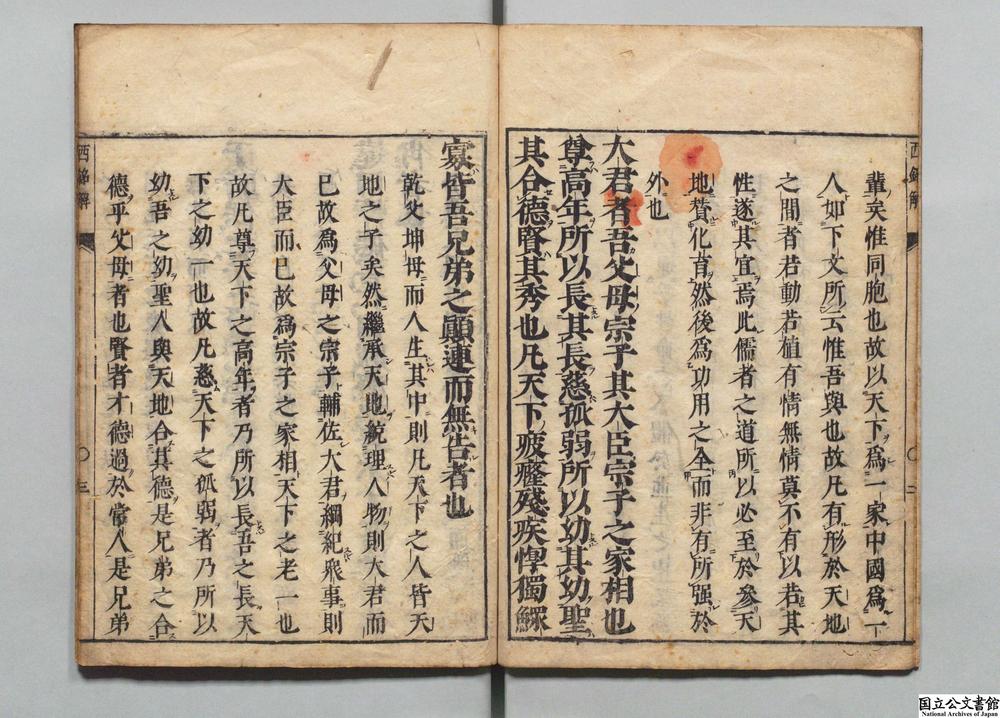 輩矣惟同胞也故以天下爲一家中國爲一
人如下文所云惟吾與也故凡有形於天地
之間者若動若植有情無情莫不有以若其
性遂其宜焉此儒者之道所以必至於參天
地贊化育然後爲功用之全而非有所强於
外也
大君者吾父母宗子其大臣宗子之家相也
尊高年所以長其長慈孤弱所以幼其幼聖
其合德賢其秀也凡天下疲癃殘疾惸獨鰥
寡皆吾兄弟之顚連而無告者也
乾父坤母而人生其中則凡天下之人皆天
地之子矣然繼承天地統理人物則大君而
已故爲父母之宗子輔佐大君綱紀衆事則
大臣而已故爲宗子之家相天下之老一也
故凡尊天下之高年者乃所以長吾之長天
下之幼一也故凡慈天下之孤弱者乃所以
幼吾之幼聖人與天地合其德是兄弟之合
德乎父母者也賢者才德過於常人是兄弟
西銘解
三
国立公文書館
National Archives of Japan